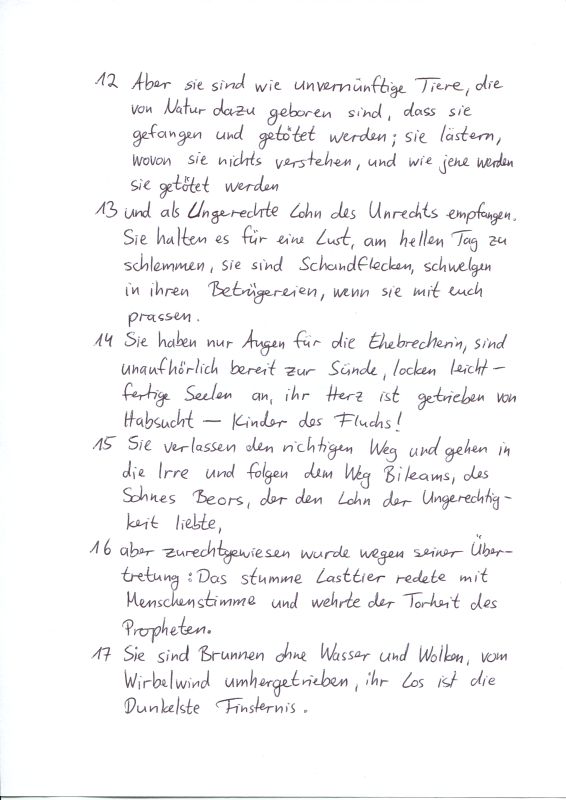 12 Aber sie sind wie unvernünftige Tiere, die
von Natur dazu geboren sind, dass sie
gefangen und getötet werden; sie lästern,
wovon sie nichts verstehen, und wie jene werden
sie getötet werden
13 und als Ungerechte Lohn des Unrechts empfangen.
Sie halten es für eine Lust, am hellen Tag zu
schlemmen, sie sind Schandflecken, schwelgen
in ihren Betrügereien, wenn sie mit euch
prassen.
14 Sie haben nur Augen für die Ehebrecherin, sind
unaufhörlich bereit zur Sünde, locken leicht-
fertige Seelen an, ihr Herz ist getrieben von
Habsucht – Kinder des Fluchs!
15 Sie verlassen den richtigen Weg und gehen in
die Irre und folgen dem Weg Bileams, des
Sohnes Beors, der den Lohn der Ungerechtig-
keit liebte,
16 aber zurechtgewiesen wurde wegen seiner Über-
tretung: Das stumme Lasttier redete mit
Menschenstimme und wehrte der Torheit des
Propheten.
17 Sie sind Brunnen ohne Wasser und Wolken, vom
Wirbelwind umhergetrieben, ihr Los ist die
Dunkelste Finsternis.